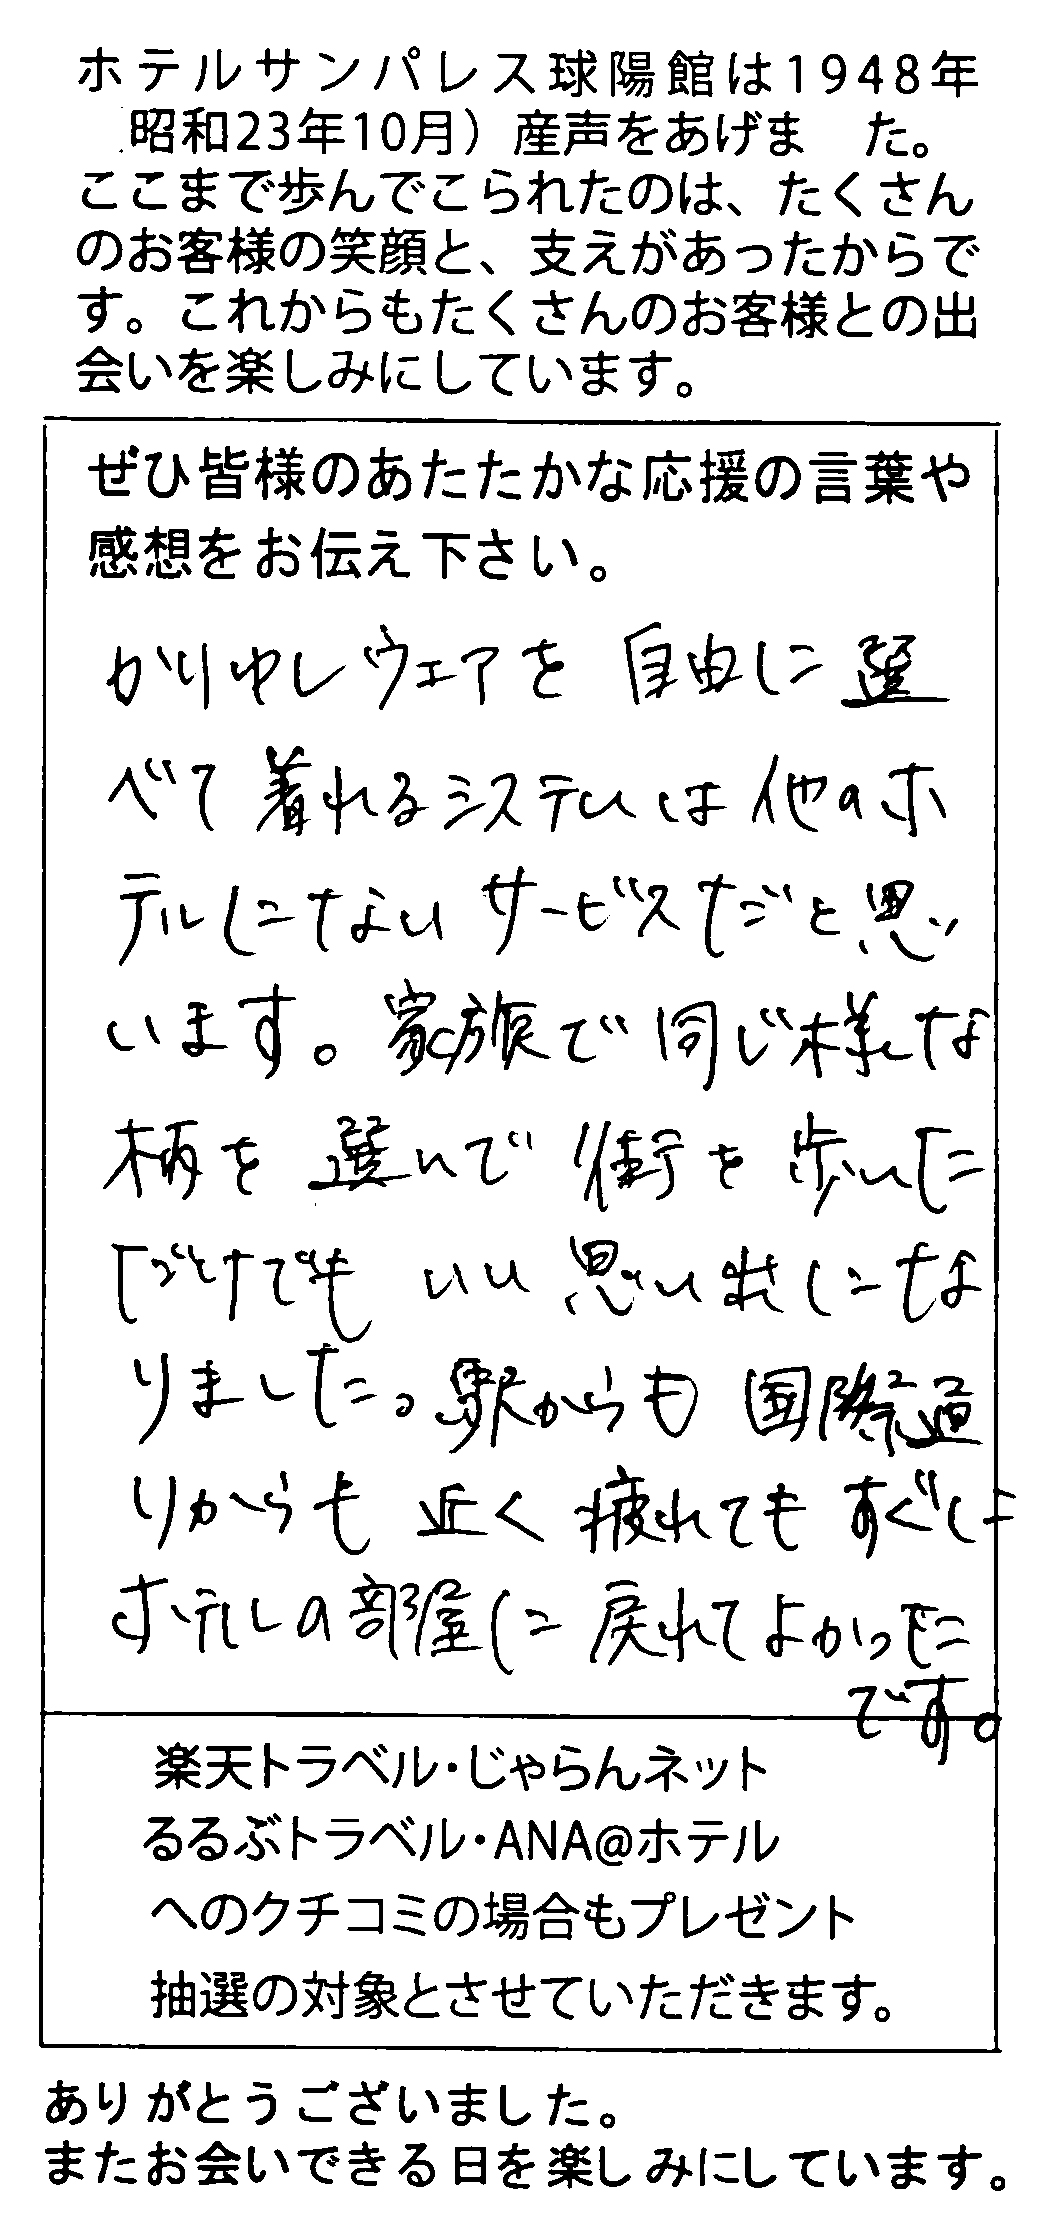 ホテルサンパレス球陽館は1948年
昭和23年10月）産声をあげま た。
ここまで歩んでこられたのは、たくさん
のお客様の笑顔と、支えがあったからで
す。これからもたくさんのお客様との出
会いを楽しみにしています。
ぜひ皆様のあたたかな応援の言葉や
感想をお伝え下さい。
かりゆしウェアを自由に選
べて着れるシステムは他のホ
テルにないサービスだと思い
います。家族で同じ様な
柄を選んで街を歩いた
だけでもいい思い出にな
りました。駅からも国際通
りからも近く疲れてもすぐに
ホテルの部屋に戻れてよかった
です。
楽天トラベル・じゃらんネット
るるぶトラベル・ANA@ホテル
へのクチコミの場合もプレゼント
抽選の対象とさせていただきます。
ありがとうございました。
またお会いできる日を楽しみにしています。